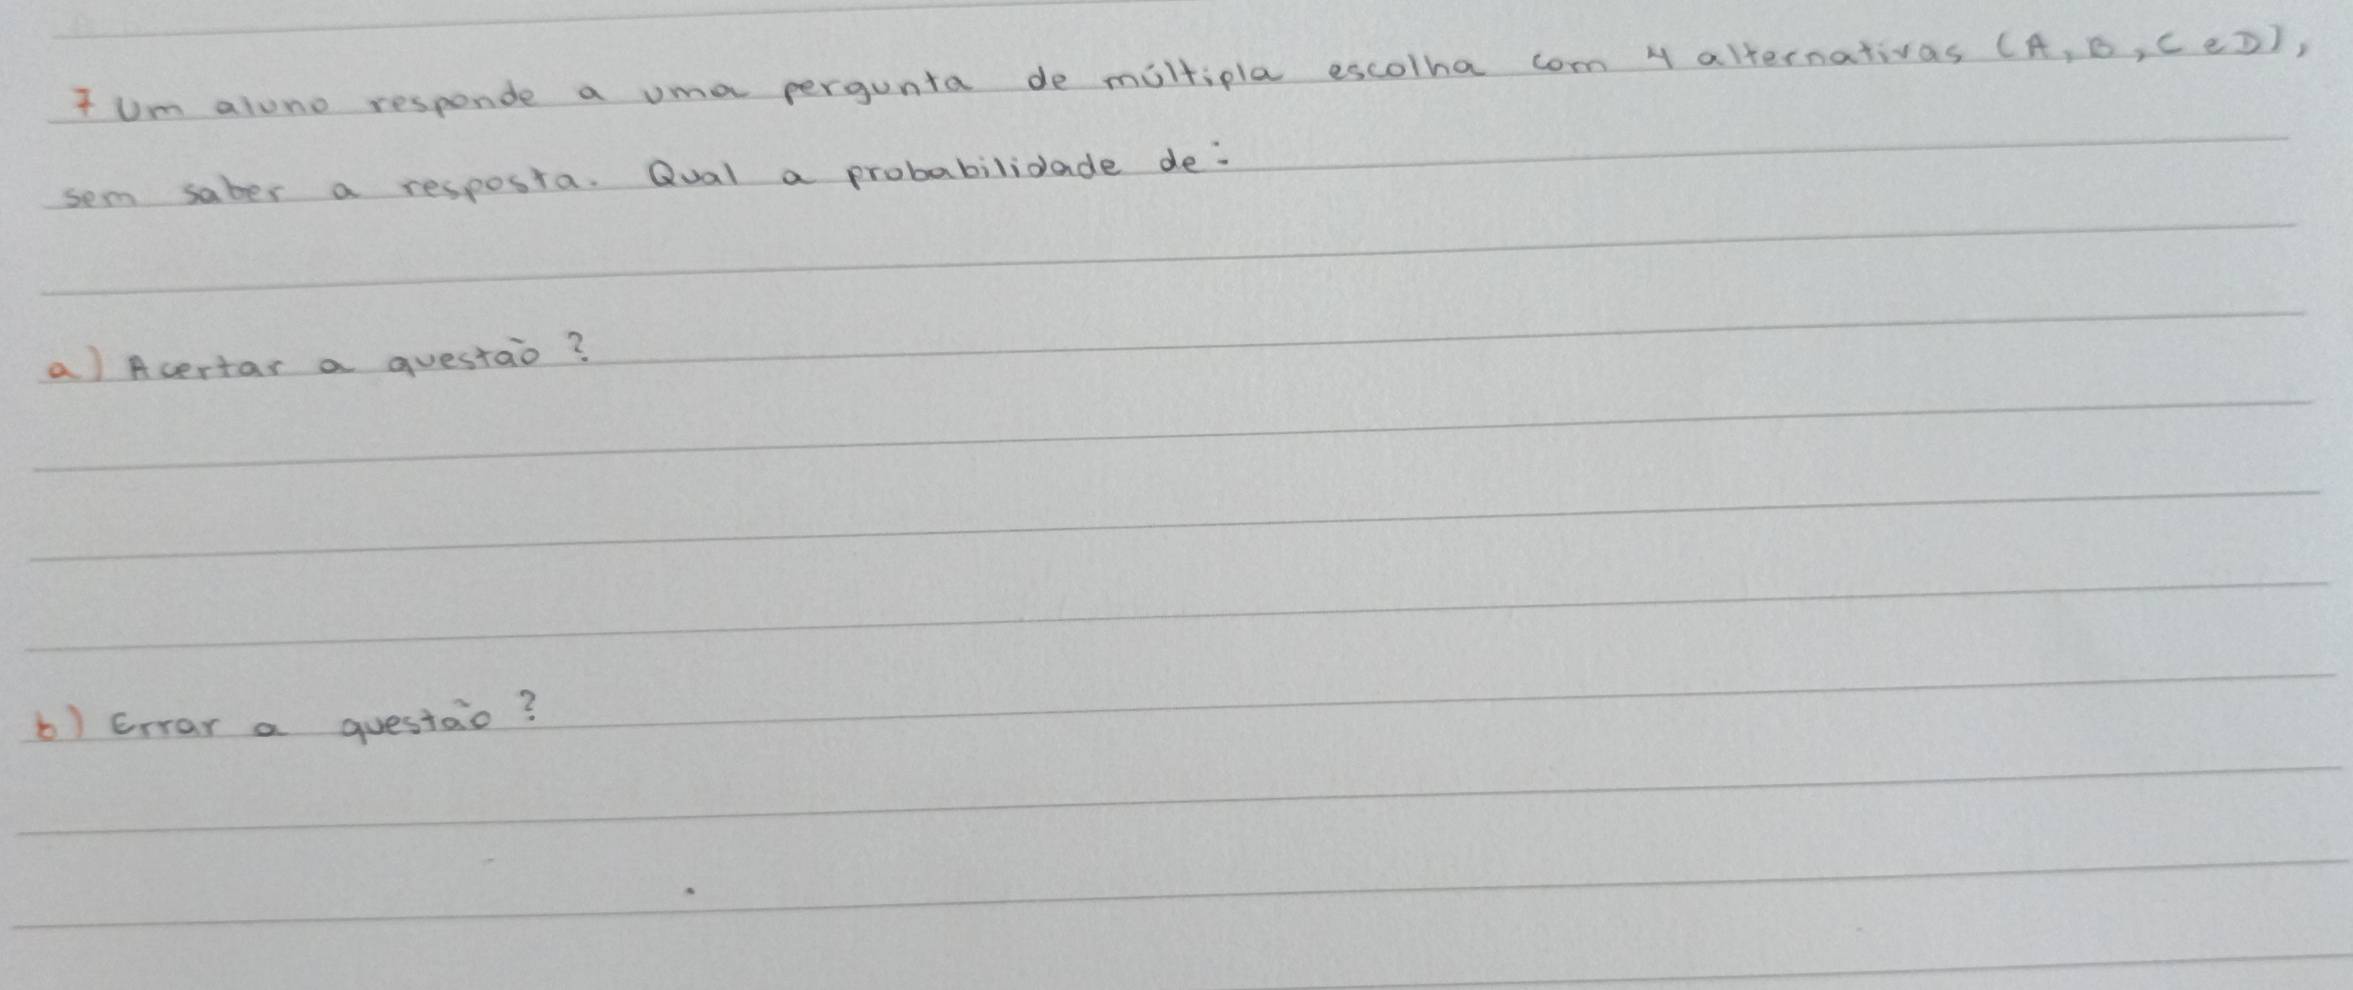 7 Um aluno responde a uma pergunta de múltipla escolha com 4 alternativas (A, B, C e D),
sem saber a resposta. Qual a probabilidade de:
a) Acertar a questão?
b) Errar a questão?